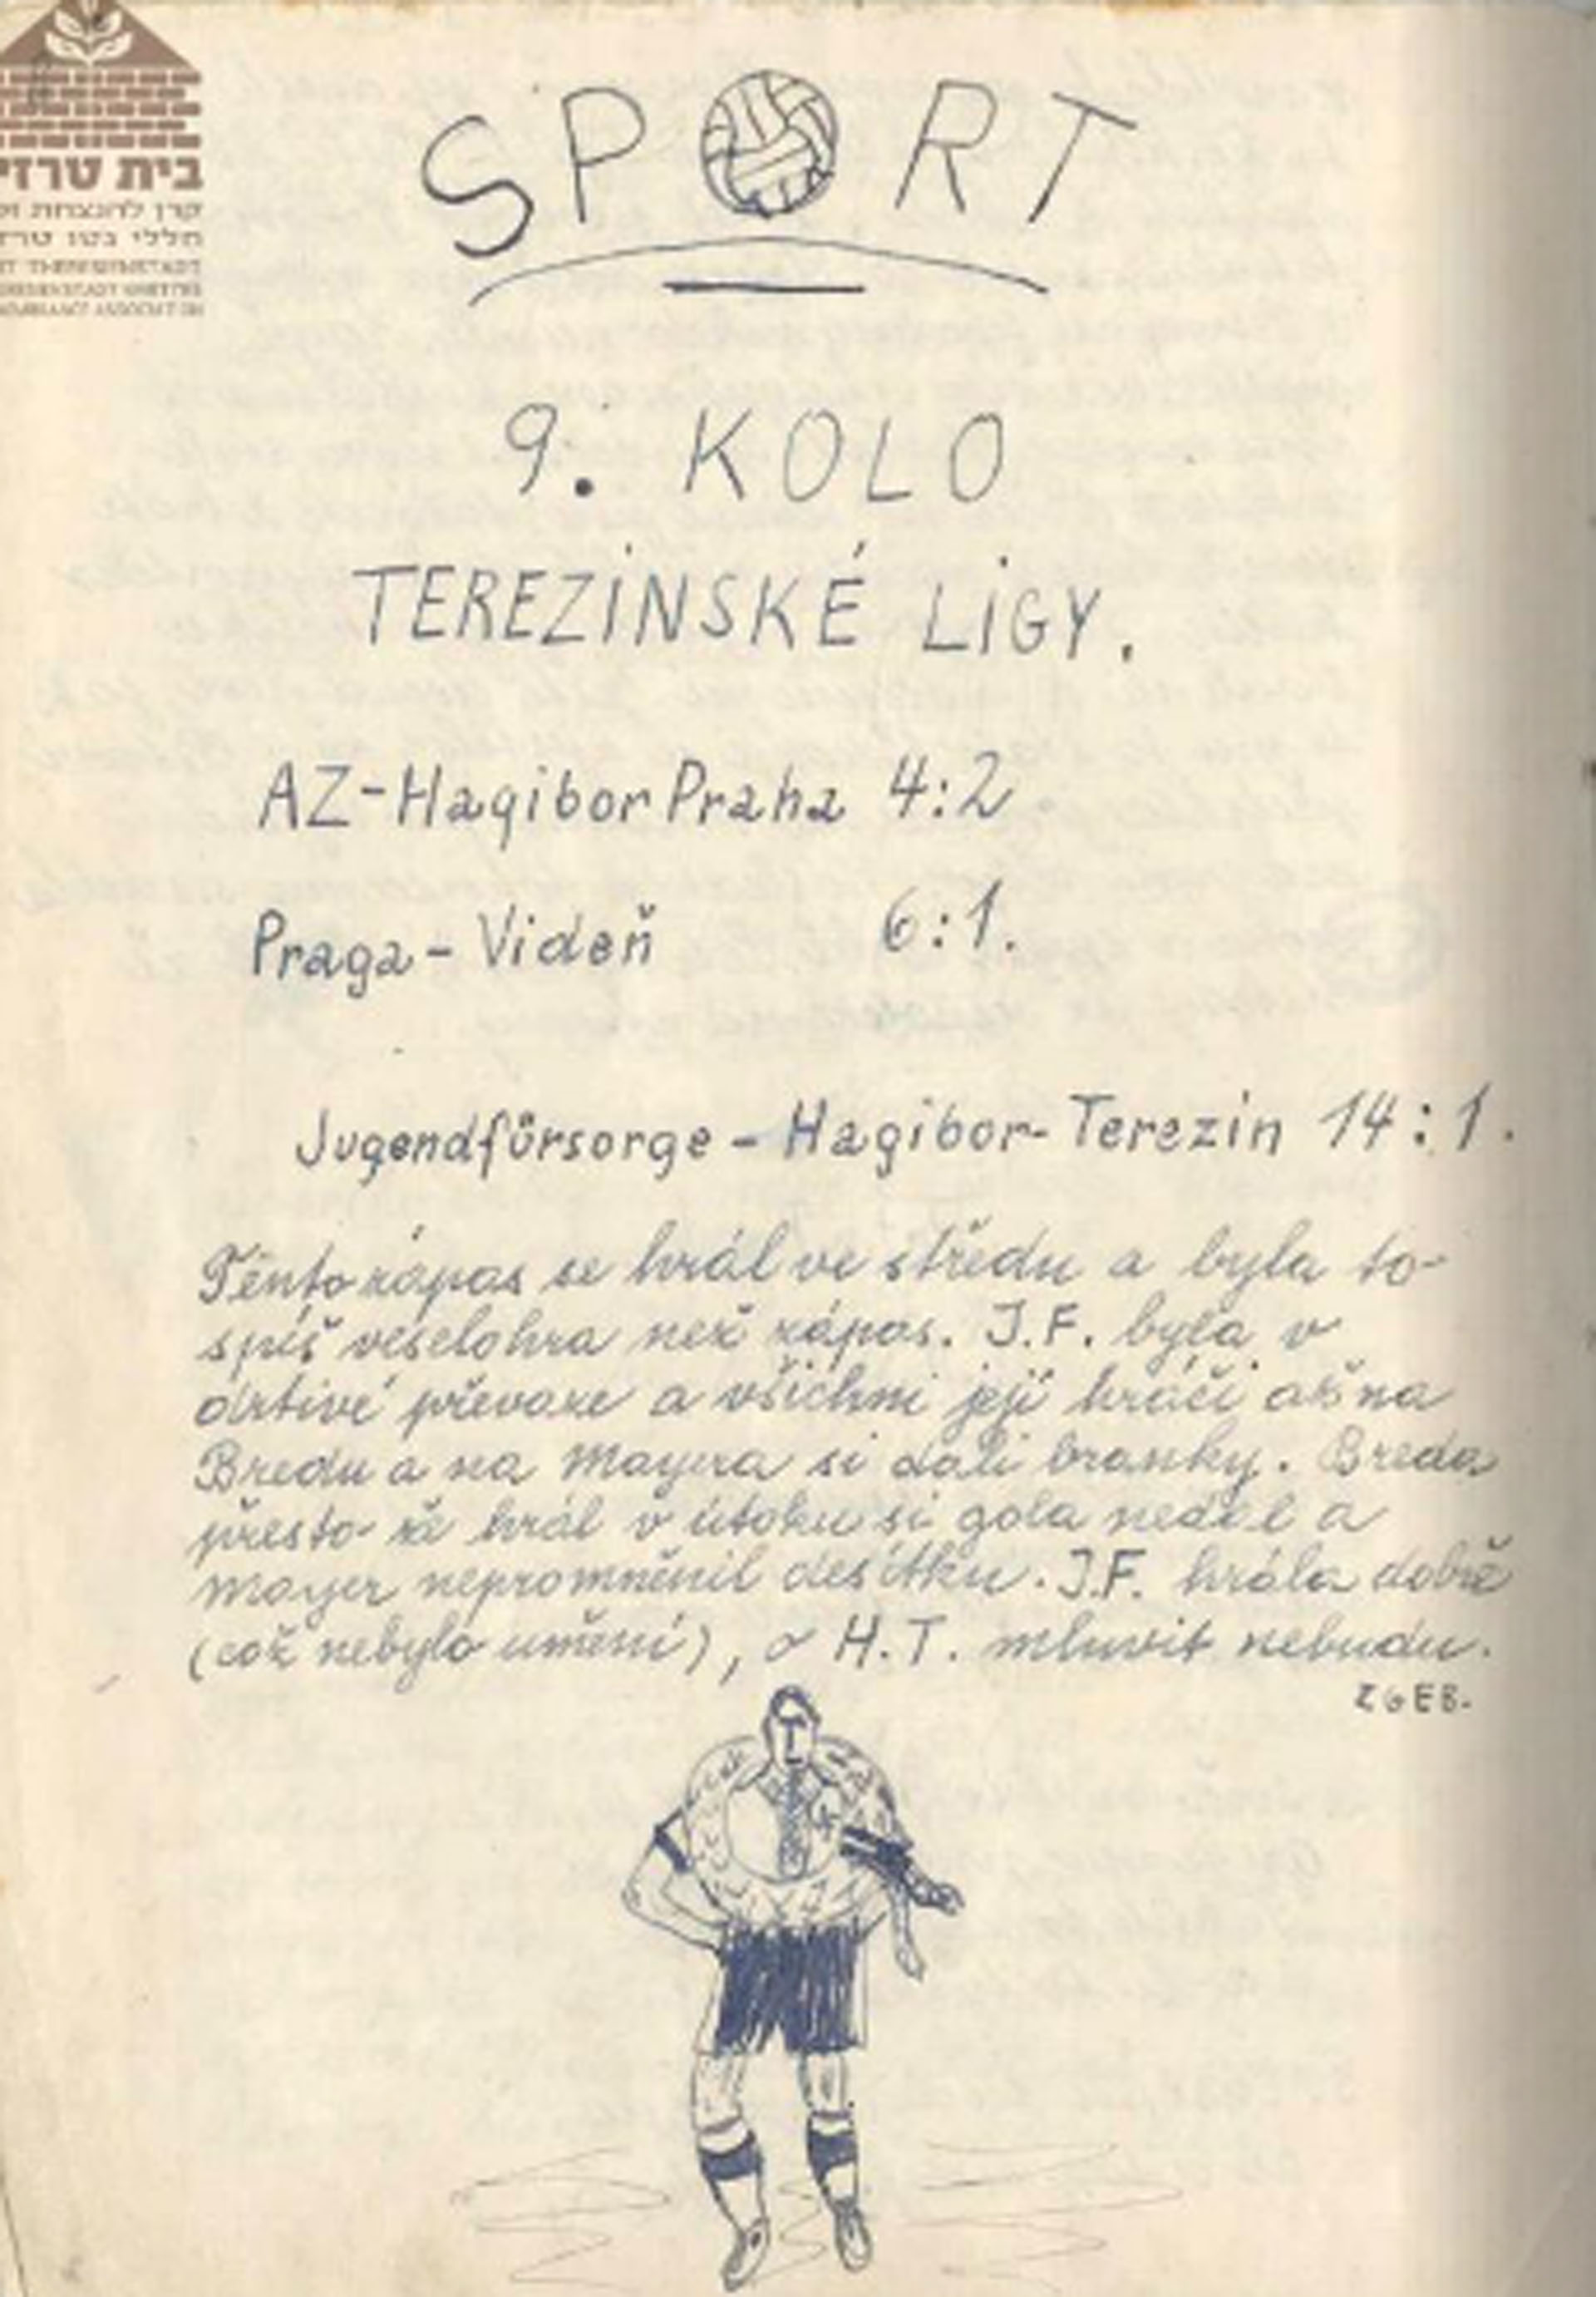 בית טרזי
קרן להנצחת
חללי גטו טרז
SPORT
9. KOLO
TEREZÍNSKÉ LIGY.
AZ-Hagibor Praha 4:2
Praga - Videň 6:1.
Jugendfürsorge - Hagibor-Terezin 14:1.
Tento zápas se hrál ve středu a byla to
spíš veselohra než zápas. J.F. byla v
drtivé převaze a všichni její hráči až na
Bredu a na Mayera si dali branky. Breda
přesto že hrál v útoku si gola nedal a
Mayer nepromněnil desítku. J.F. hrála dobře
(což nebylo umění), o H.T. mluvit nebudu.